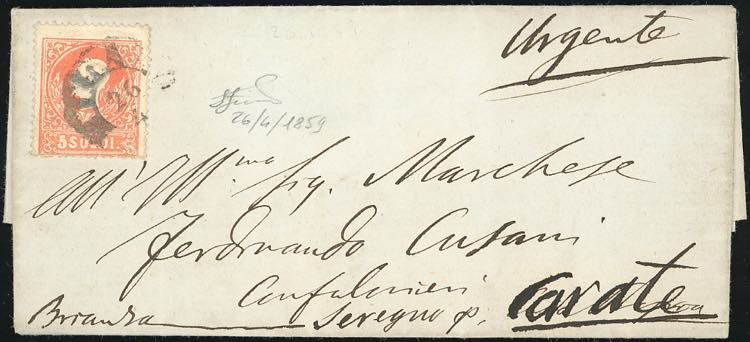 Urgente
5 SOLDI
26/4/1859
All' Ill.mo Sig. Marchese
Ferdinando Cusani
Confalonieri
Brianza Seregno p. Carate